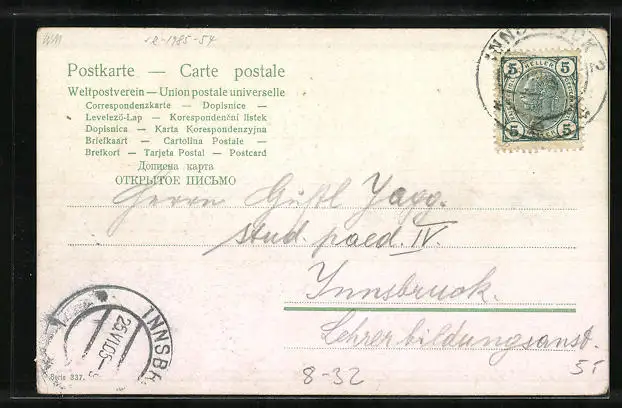 WM
R-1985-54
Postkarte — Carte postale
Weltpostverein — Union postale universelle
Correspondenzkarte — Dopisnice —
Levelező-Lap — Korespondenční listek
Dopisnica — Karta Korespondenzyjna
Briefkaart — Cartolina Postale —
Brefkort — Tarjeta Postal — Postcard
Дописна карта
ОТКРЫТОЕ ПИСЬМО
5 HELLER 5
5 5
Herrn Gustl Jagg.
stud. paed. IV.
Innsbruck.
Lehrerbildungsanst.
INNSBR
25 VI 05
8-32
5-
Serie 337.